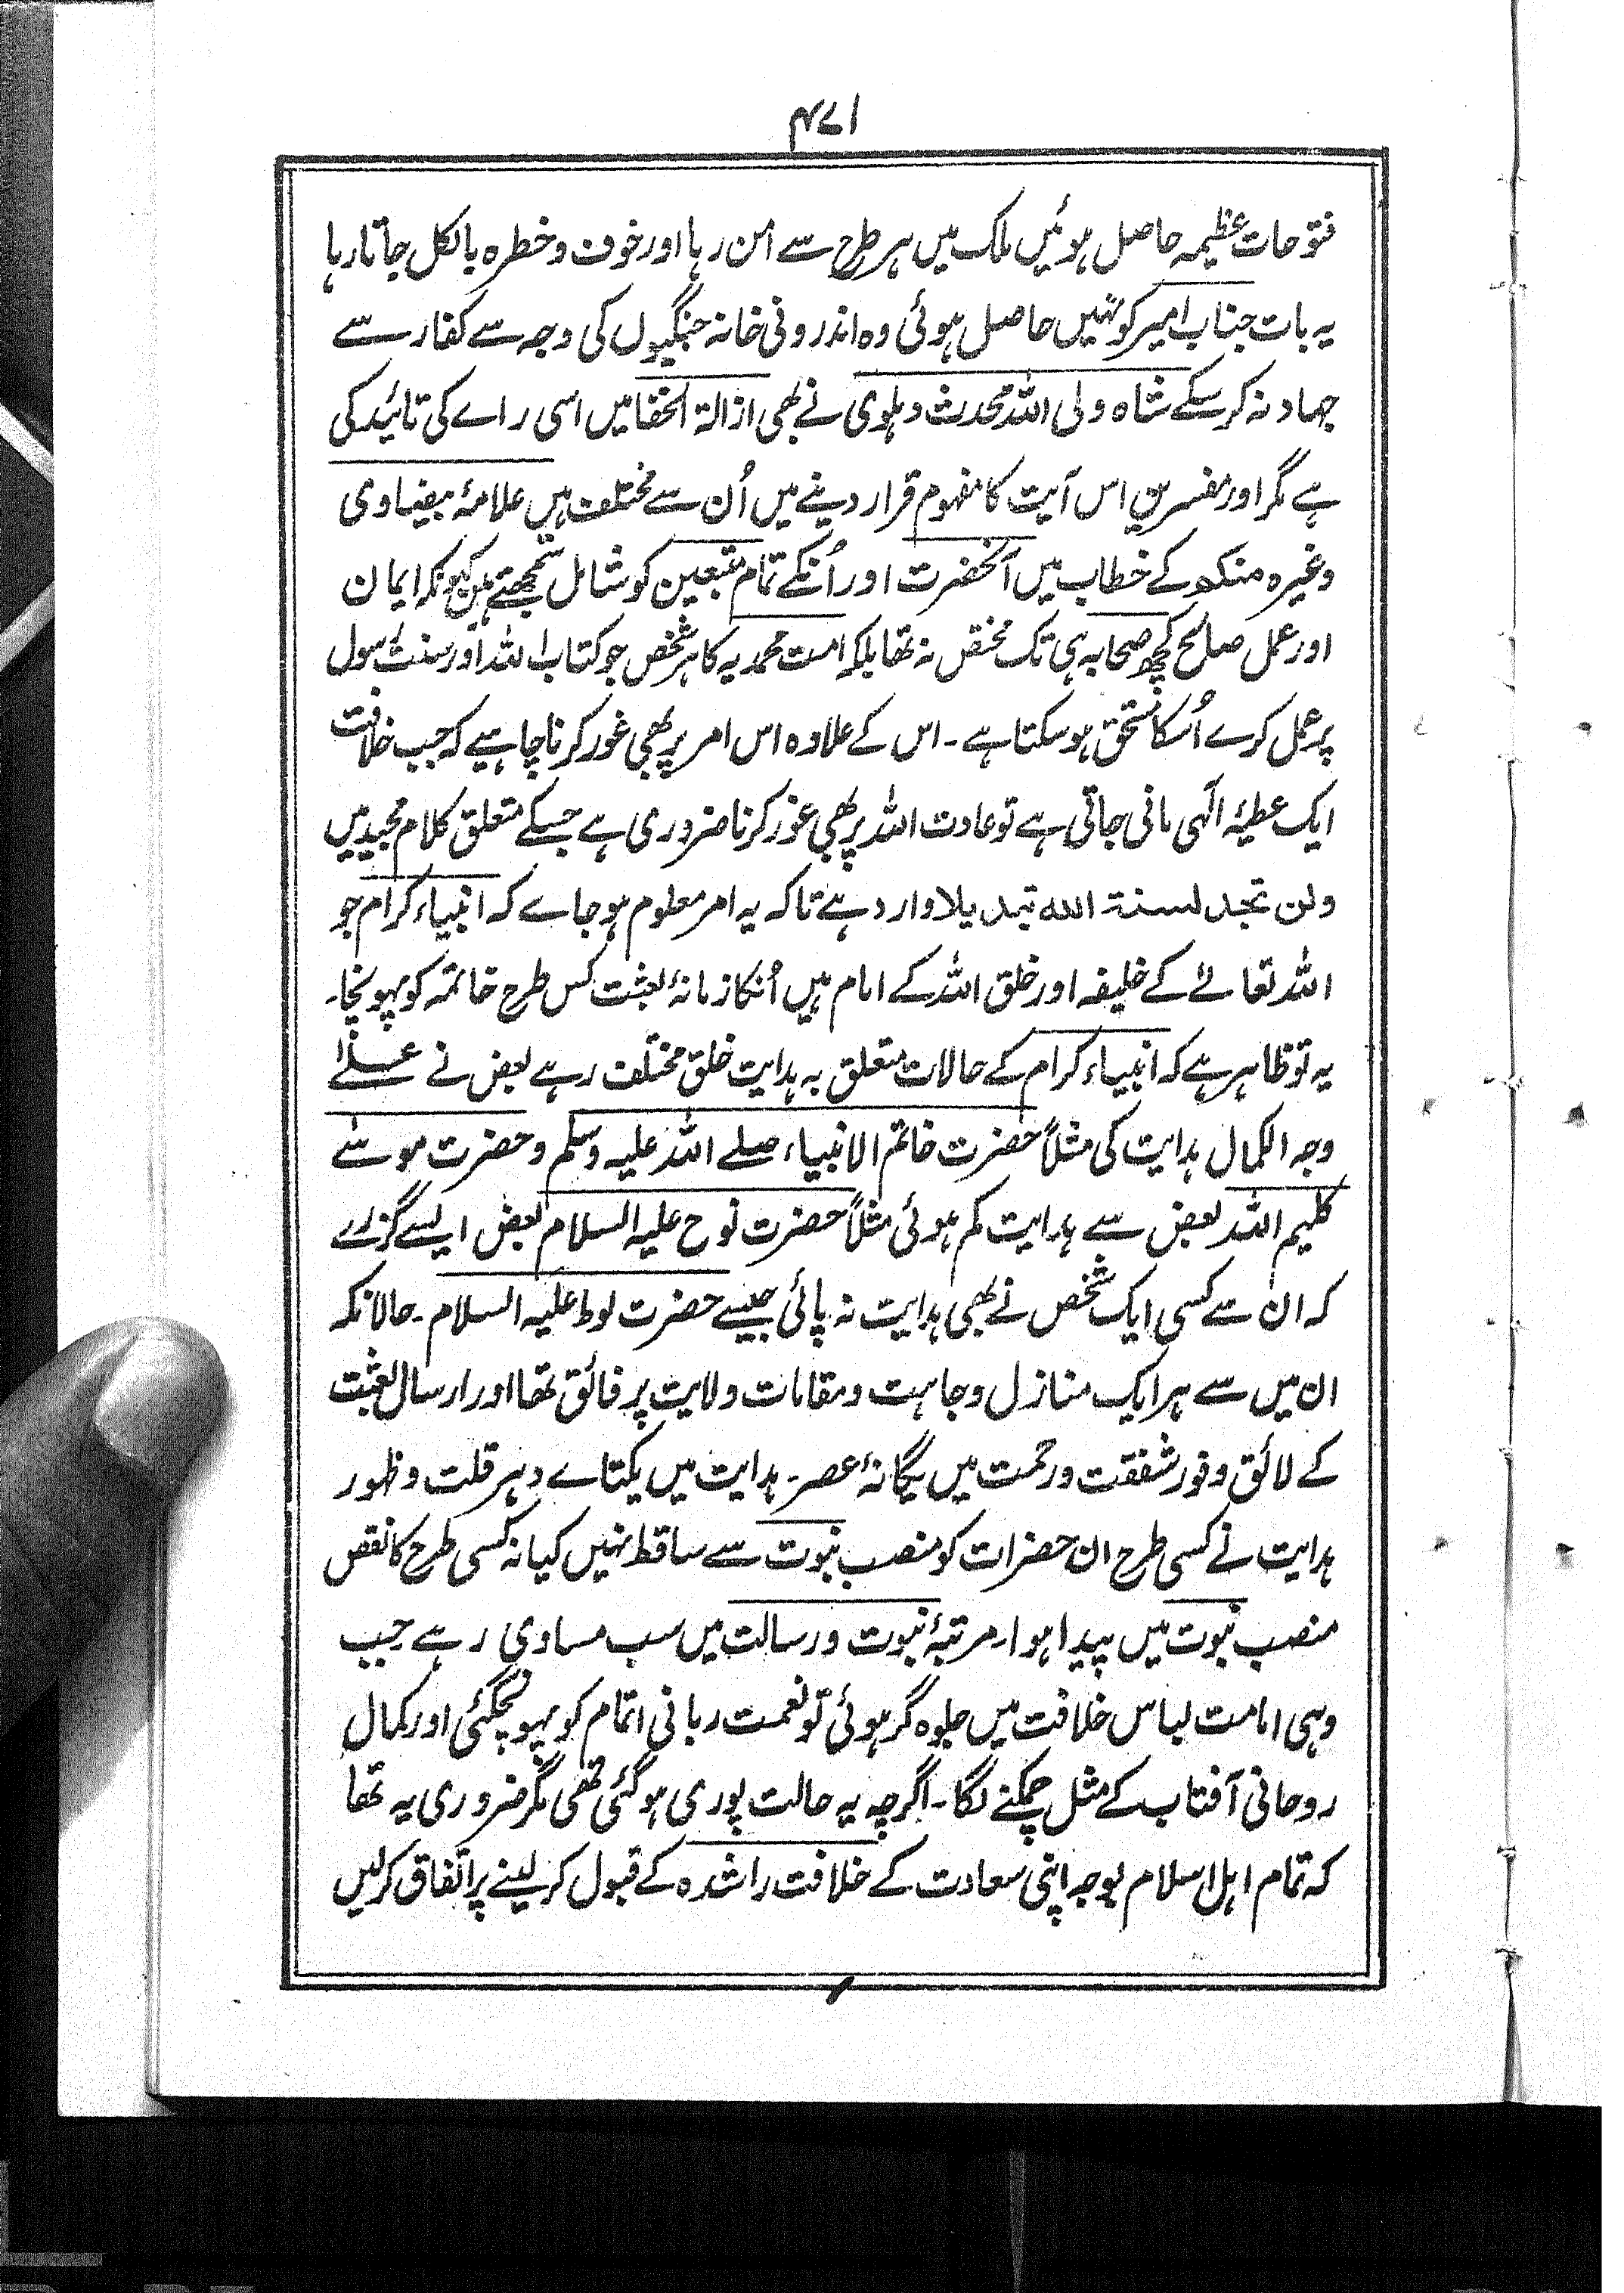 ۴۷۱
فتوحات عظیمہ حاصل ہوئیں ملک میں ہر طرح سے امن رہا اور خوف و خطرہ بالکل جاتا رہا
یہ بات جناب امیر کو نہیں حاصل ہوئی وہ اندرونی خانہ جنگیوں کی وجہ سے کفار سے
جہاد نہ کر سکے شاہ ولی اللہ محدث دہلوی نے بھی ازالۃ الخفا میں اسی راے کی تائید کی
ہے مگر اور مفسرین اس آیت کا مفہوم قرار دینے میں اُن سے مختلف ہیں علامۂ بیضاوی
وغیرہ منکم کے خطاب میں آنحضرت اور اُنکے تمام متبعین کو شامل سمجھتے ہیں کیونکہ ایمان
اور عمل صالح کچھ صحابہ ہی تک مختص نہ تھا بلکہ امت محمدیہ کا ہر شخص جو کتاب اللہ اور سنت رسول
پر عمل کرے اُسکا مستحق ہو سکتا ہے۔ اس کے علاوہ اس امر پر بھی غور کرنا چاہیے کہ جب خلافت
ایک عطیۂ الٰہی مانی جاتی ہے تو عادت اللہ پر بھی غور کرنا ضروری ہے جسکے متعلق کلام مجید میں
ولن تجد لسنۃ اللہ تبدیلا وارد ہے تاکہ یہ امر معلوم ہو جاے کہ انبیاء کرام جو
اللہ تعالےٰ کے خلیفہ اور خلق اللہ کے امام ہیں اُنکا زمانۂ بعثت کس طرح خاتمہ کو پہونچا۔
یہ تو ظاہر ہے کہ انبیاء کرام کے حالات متعلق بہ ہدایت خلق مختلف رہے بعض نے علےٰ
وجہ الکمال ہدایت کی مثلاً حضرت خاتم الانبیاء صلے اللہ علیہ وسلم و حضرت موسےٰ
کلیم اللہ بعض سے ہدایت کم ہوئی مثلاً حضرت نوح علیہ السلام بعض ایسے گزرے
کہ ان سے کسی ایک شخص نے بھی ہدایت نہ پائی جیسے حضرت لوط علیہ السلام۔ حالانکہ
ان میں سے ہر ایک منازل وجاہت و مقامات ولایت پر فائق تھا اور ارسال بعثت
کے لائق وفور شفقت و رحمت میں یگانۂ عصر۔ ہدایت میں یکتاے دہر قلت و ظہور
ہدایت نے کسی طرح ان حضرات کو منصب نبوت سے ساقط نہیں کیا نہ کسی طرح کا نقص
منصب نبوت میں پیدا ہوا۔ مرتبۂ نبوت و رسالت میں سب مساوی رہے جب
وہی امامت لباس خلافت میں جلوہ گر ہوئی تو نعمت ربانی اتمام کو پہونچگئی اور کمال
روحانی آفتاب کے مثل چمکنے لگا۔ اگرچہ یہ حالت پوری ہو گئی تھی مگر ضروری یہ تھا
کہ تمام اہل اسلام بوجہ اپنی سعادت کے خلافت راشدہ کے قبول کر لینے پر اتفاق کر لیں